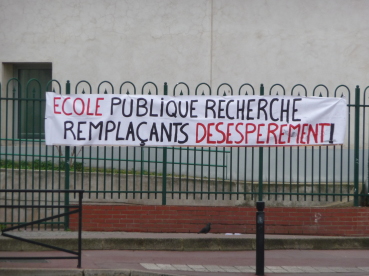 ECOLE PUBLIQUE RECHERCHE
REMPLAÇANTS DESESPEREMENT!